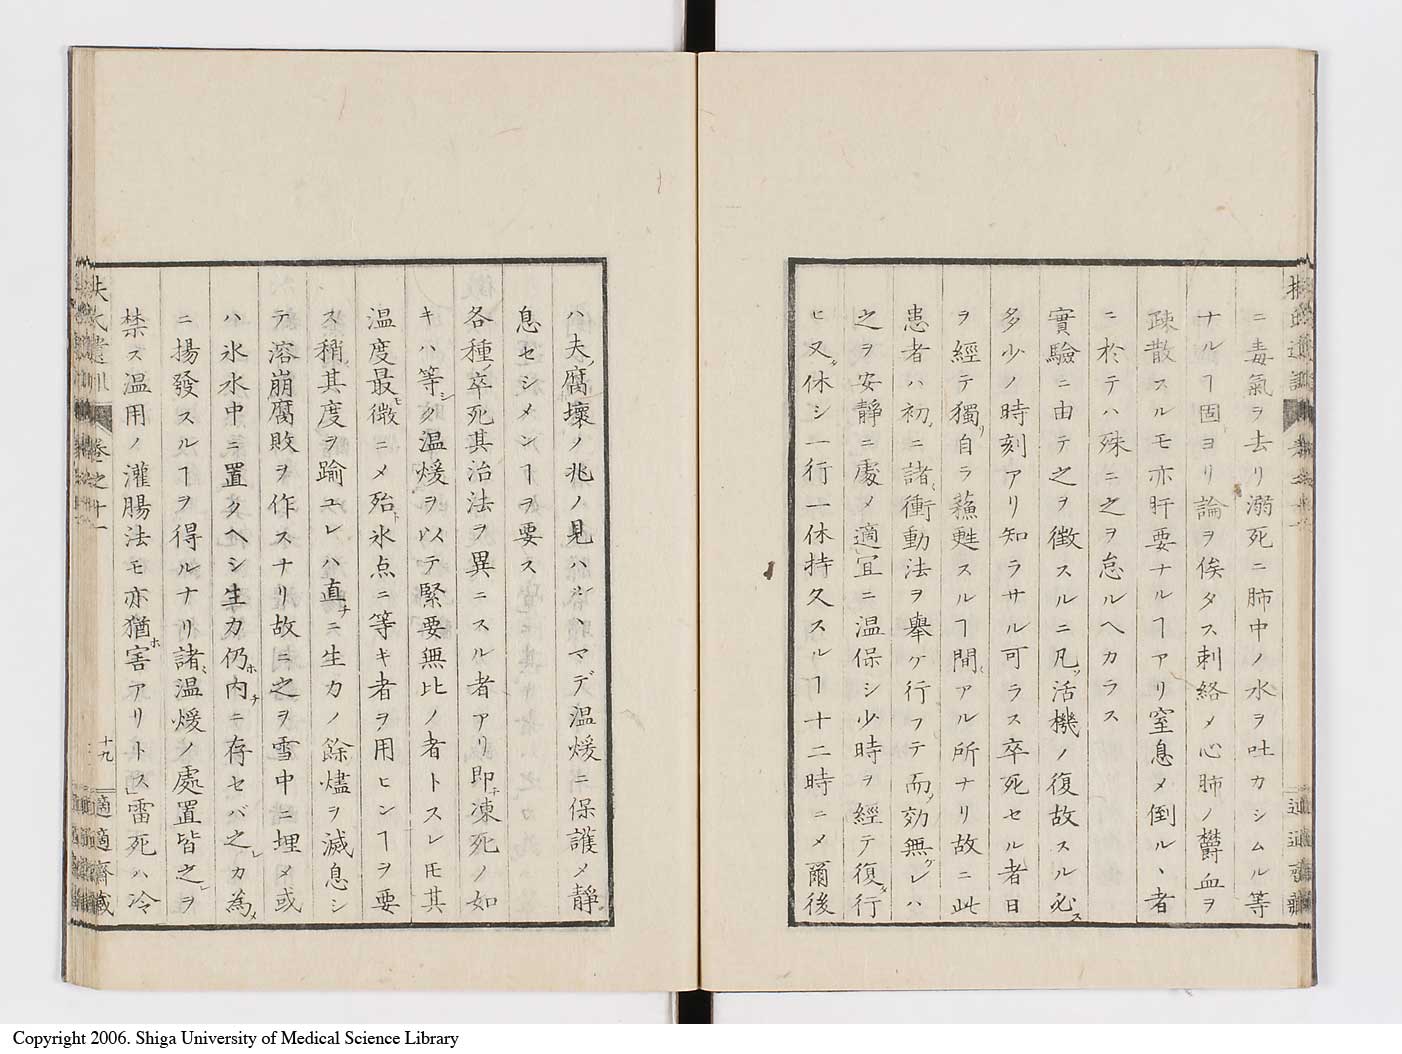 ニ毒氣ヲ去リ溺死ニ肺中ノ水ヲ吐カシムル等
ナルヿ固ヨリ論ヲ俟タス刺絡メ心肺ノ欝血ヲ
疎散スルモ亦肝要ナルヿアリ窒息メ倒ルヽ者
ニ於テハ殊ニ之ヲ怠ルヘカラス
實驗ニ由テ之ヲ徴スルニ凡ソ活機ノ復故スル必ス
多少ノ時刻アリ知ラサル可ラス卒死セル者日
ヲ經テ獨リ自ラ蘓甦スルヿ間〻アル所ナリ故ニ此
患者ハ初メニ諸〻衝動法ヲ舉ケ行フテ而メ効無ケレハ
之ヲ安靜ニ處メ適宜ニ温保シ少時ヲ經テ復タ行
ヒ又タ休シ一行一休持久スルヿ十二時ニメ爾後
ハ夫ノ腐壞ノ兆ノ見ハルヽマデ温煖ニ保護メ靜
息セシメンヿヲ要ス
各種ノ卒死其治法ヲ異ニスル者アリ即チ凍死ノ如
キハ等シク温煖ヲ以テ緊要無比ノ者トスレ𪜈其
温度最モ微ニメ殆ト氷点ニ等キ者ヲ用ヒンヿヲ要
ス稍〻其度ヲ踰ユレハ直チニ生力ノ餘燼ヲ滅息シ
テ溶崩腐敗ヲ作スナリ故ニ之ヲ雪中ニ埋メ或
ハ氷水中ニ置クヘシ生力仍ホ内チニ存セバ之レカ為メ
ニ揚發スルヿヲ得ルナリ諸〻温煖ノ處置皆之レヲ
禁ス温用ノ灌腸法モ亦猶ホ害アリトス」雷死ハ冷
扶氏遺訓
卷之十一
十九
適適齋藏